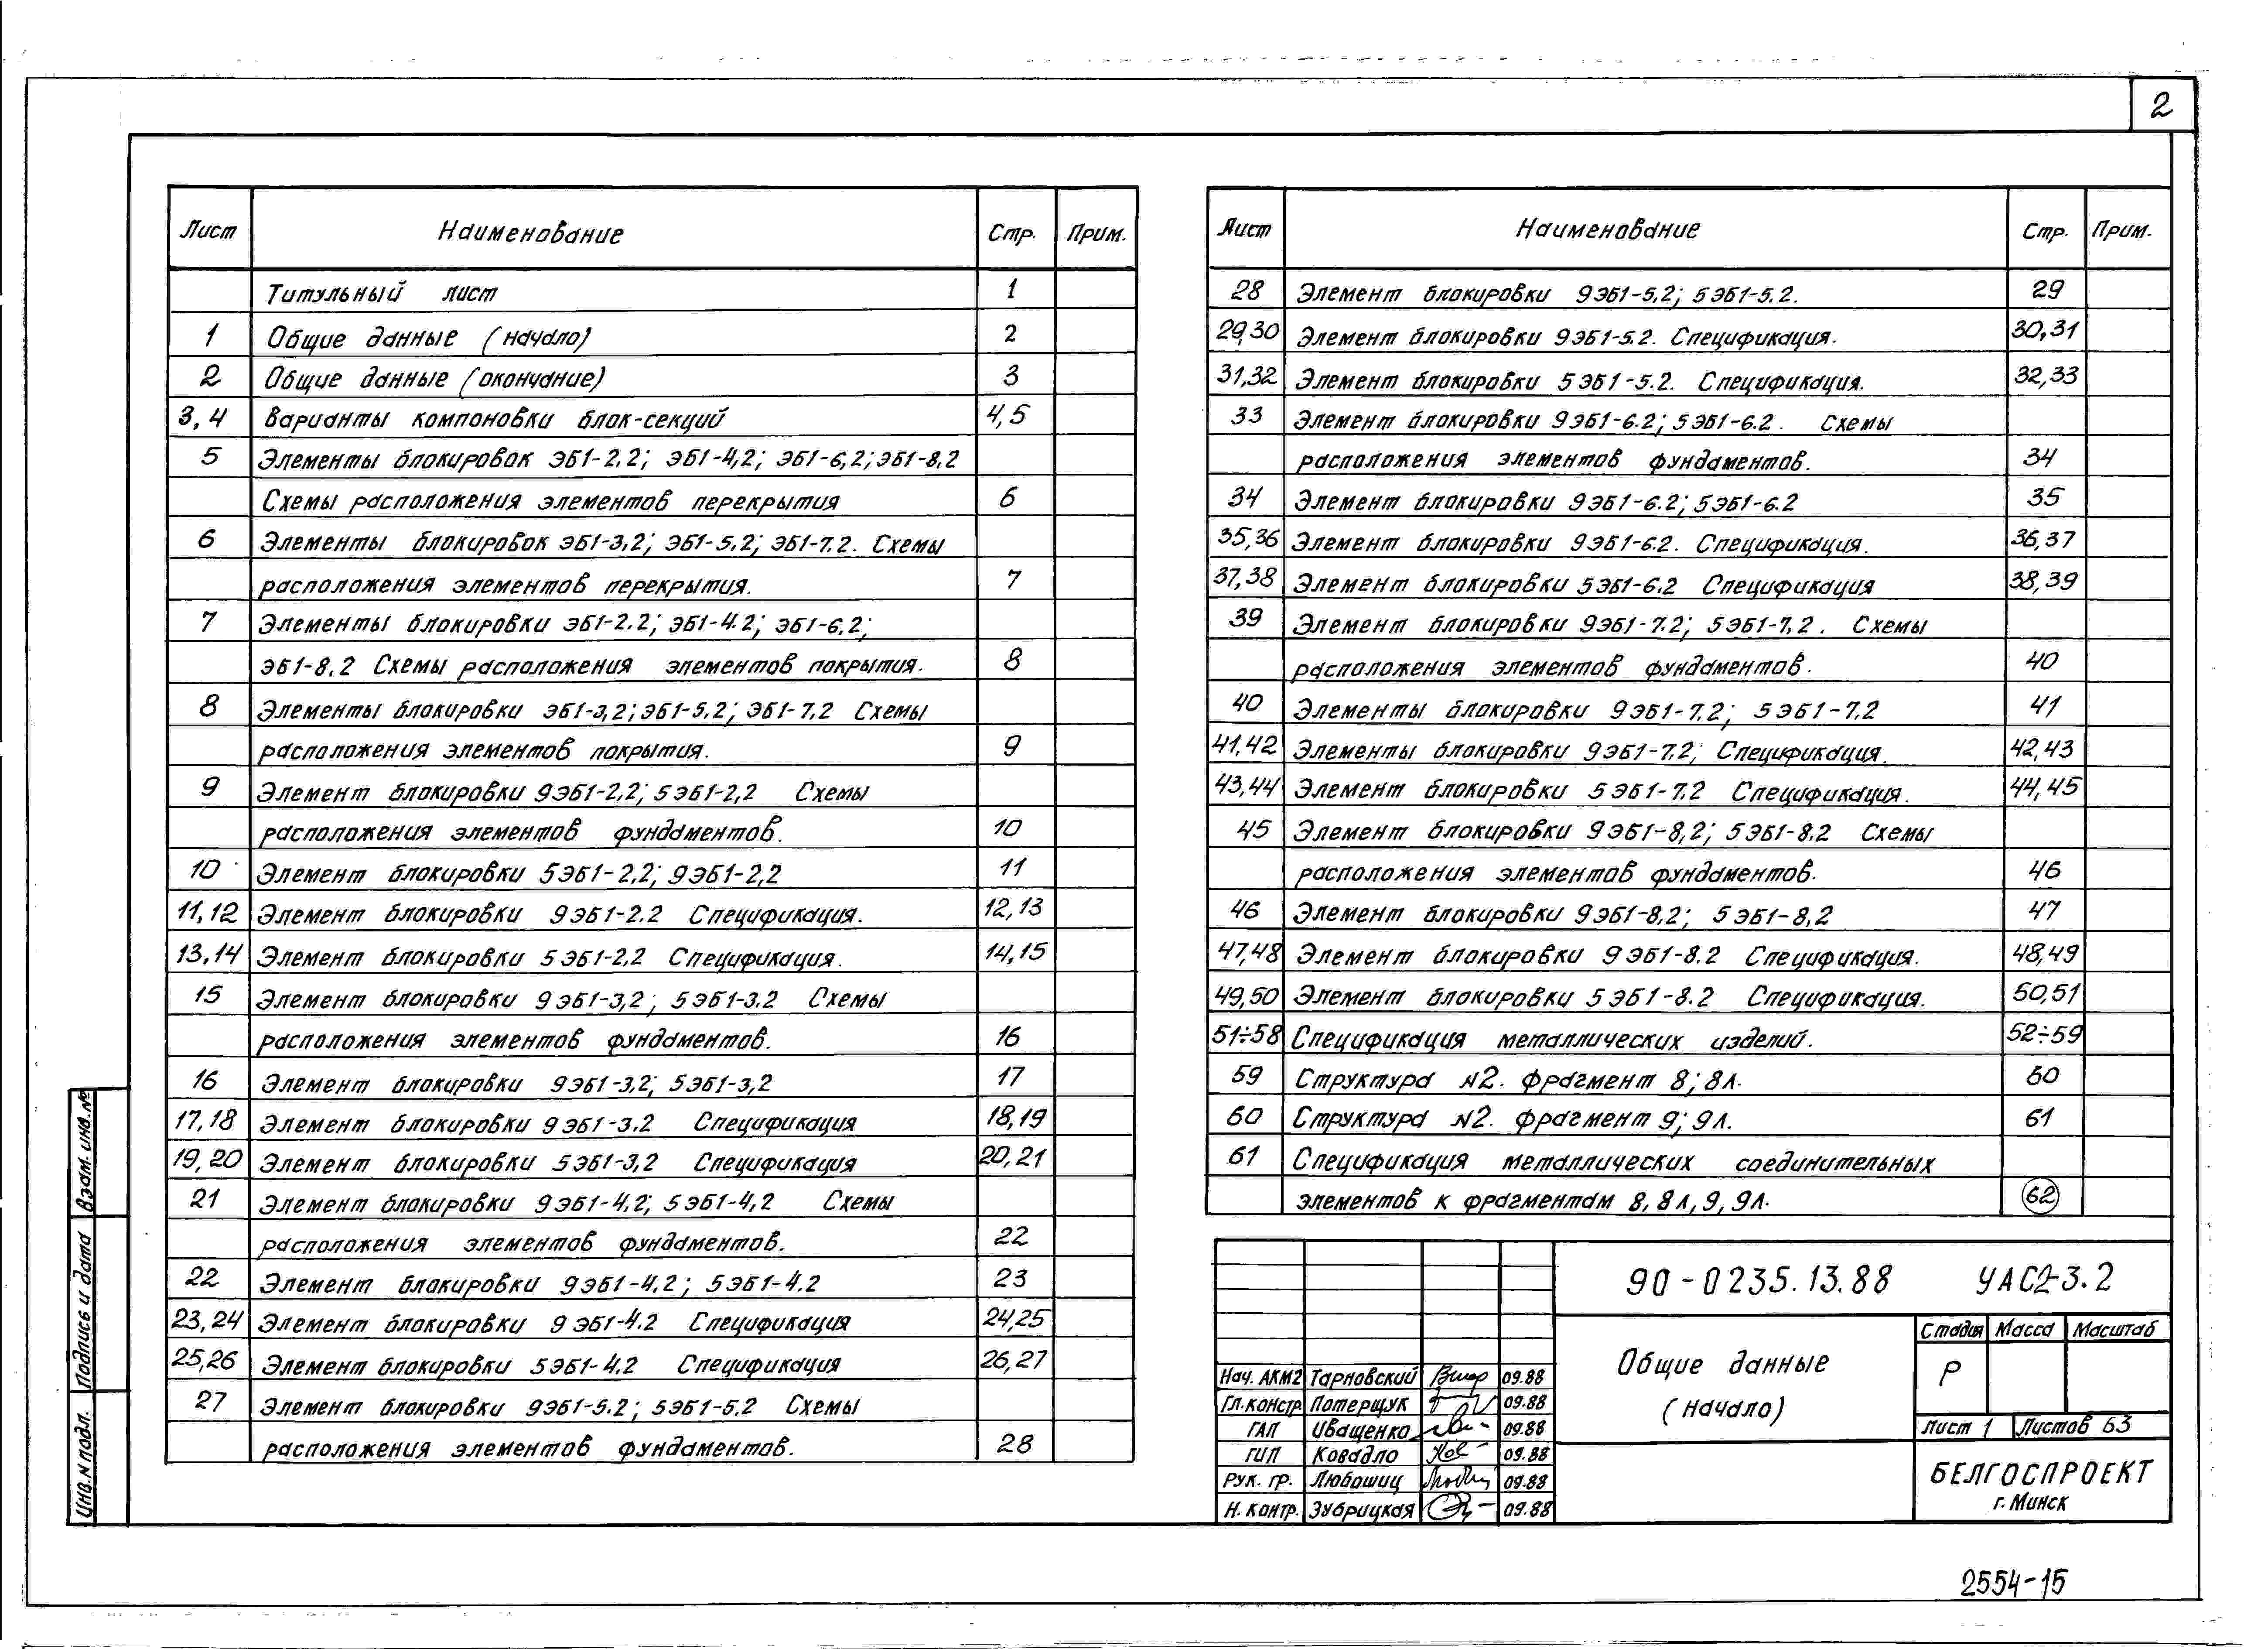 2
Лист Наименование Стр. Прим.
Титульный лист 1
1 Общие данные (начало) 2
2 Общие данные (окончание) 3
3, 4 Варианты компоновки блок-секций 4,5
5 Элементы блокировок ЭБ1-2,2; ЭБ1-4,2; ЭБ1-6,2; ЭБ1-8,2
Схемы расположения элементов перекрытия 6
6 Элементы блокировок ЭБ1-3,2; ЭБ1-5,2; ЭБ1-7,2. Схемы
расположения элементов перекрытия. 7
7 Элементы блокировки ЭБ1-2.2; ЭБ1-4.2; ЭБ1-6,2;
ЭБ1-8,2 Схемы расположения элементов покрытия. 8
8 Элементы блокировки ЭБ1-3,2; ЭБ1-5,2; ЭБ1-7,2 Схемы
расположения элементов покрытия. 9
9 Элемент блокировки 9ЭБ1-2,2; 5ЭБ1-2,2 Схемы
расположения элементов фундаментов. 10
10 Элемент блокировки 5ЭБ1-2,2; 9ЭБ1-2,2 11
11,12 Элемент блокировки 9ЭБ1-2.2 Спецификация. 12,13
13,14 Элемент блокировки 5ЭБ1-2,2 Спецификация. 14,15
15 Элемент блокировки 9ЭБ1-3,2; 5ЭБ1-3.2 Схемы
расположения элементов фундаментов. 16
16 Элемент блокировки 9ЭБ1-3,2; 5ЭБ1-3,2 17
17,18 Элемент блокировки 9ЭБ1-3.2 Спецификация 18,19
19,20 Элемент блокировки 5ЭБ1-3,2 Спецификация 20,21
21 Элемент блокировки 9ЭБ1-4,2; 5ЭБ1-4,2 Схемы
расположения элементов фундаментов. 22
22 Элемент блокировки 9ЭБ1-4.2; 5ЭБ1-4.2 23
23,24 Элемент блокировки 9ЭБ1-4.2 Спецификация 24,25
25,26 Элемент блокировки 5ЭБ1-4,2 Спецификация 26,27
27 Элемент блокировки 9ЭБ1-5.2; 5ЭБ1-5.2 Схемы
расположения элементов фундаментов. 28
Лист Наименование Стр. Прим.
28 Элемент блокировки 9ЭБ1-5,2; 5ЭБ1-5.2. 29
29,30 Элемент блокировки 9ЭБ1-5.2. Спецификация. 30,31
31,32 Элемент блокировки 5ЭБ1-5.2. Спецификация. 32,33
33 Элемент блокировки 9ЭБ1-6.2; 5ЭБ1-6.2. Схемы
расположения элементов фундаментов. 34
34 Элемент блокировки 9ЭБ1-6.2; 5ЭБ1-6.2 35
35,36 Элемент блокировки 9ЭБ1-6.2. Спецификация. 36,37
37,38 Элемент блокировки 5ЭБ1-6.2 Спецификация 38,39
39 Элемент блокировки 9ЭБ1-7.2; 5ЭБ1-7,2. Схемы
расположения элементов фундаментов. 40
40 Элементы блокировки 9ЭБ1-7,2; 5ЭБ1-7,2 41
41,42 Элементы блокировки 9ЭБ1-7,2; Спецификация. 42,43
43,44 Элемент блокировки 5ЭБ1-7,2 Спецификация. 44,45
45 Элемент блокировки 9ЭБ1-8,2; 5ЭБ1-8.2 Схемы
расположения элементов фундаментов. 46
46 Элемент блокировки 9ЭБ1-8,2; 5ЭБ1-8,2 47
47,48 Элемент блокировки 9ЭБ1-8.2 Спецификация. 48,49
49,50 Элемент блокировки 5ЭБ1-8.2 Спецификация. 50,51
51÷58 Спецификация металлических изделий. 52÷59
59 Структура №2. фрагмент 8; 8л. 60
60 Структура №2. фрагмент 9; 9л. 61
61 Спецификация металлических соединительных
элементов к фрагментам 8, 8л, 9, 9л. 62
90-0235.13.88 УАС2-3.2
Общие данные
(начало)
Стадия Масса Масштаб
Р
Лист 1 Листов 63
БЕЛГОСПРОЕКТ
г. Минск
Нач. АКМ2 Тарновский 09.88
Гл. констр Потерщук 09.88
ГАП Иващенко 09.88
ГИП Ковадло 09.88
Рук. гр. Любошиц 09.88
Н. контр. Зубрицкая 09.88
Инв. N подл. Подпись и дата Взам. инв. №
2554-15